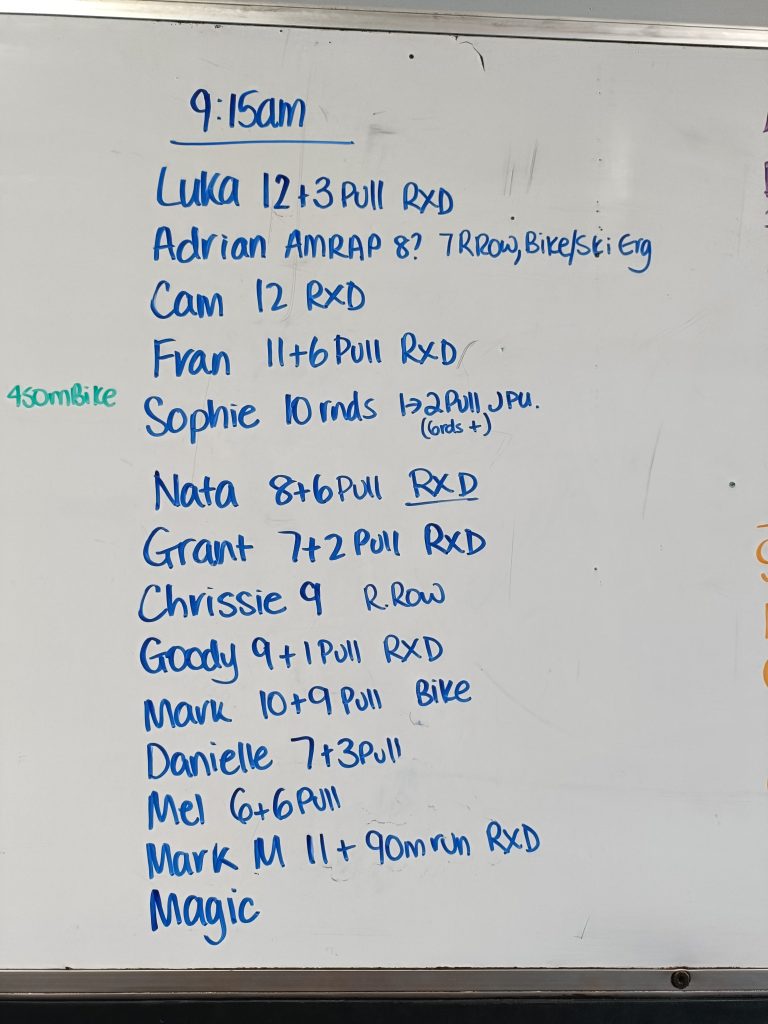 9:15am
Luka 12+3 Pull RXD
Adrian AMRAP 8? 7 R Row, Bike/Ski Erg
Cam 12 RXD
Fran 11+6 Pull RXD
450m Bike
Sophie 10 rnds 1→2 Pull, JPU.
(6rds +)
Nata 8+6 Pull RXD
Grant 7+2 Pull RXD
Chrissie 9 R.Row
Goody 9+1 Pull RXD
Mark 10+9 Pull Bike
Danielle 7+3 Pull
Mel 6+6 Pull
Mark M 11+ 90m run RXD
Magic